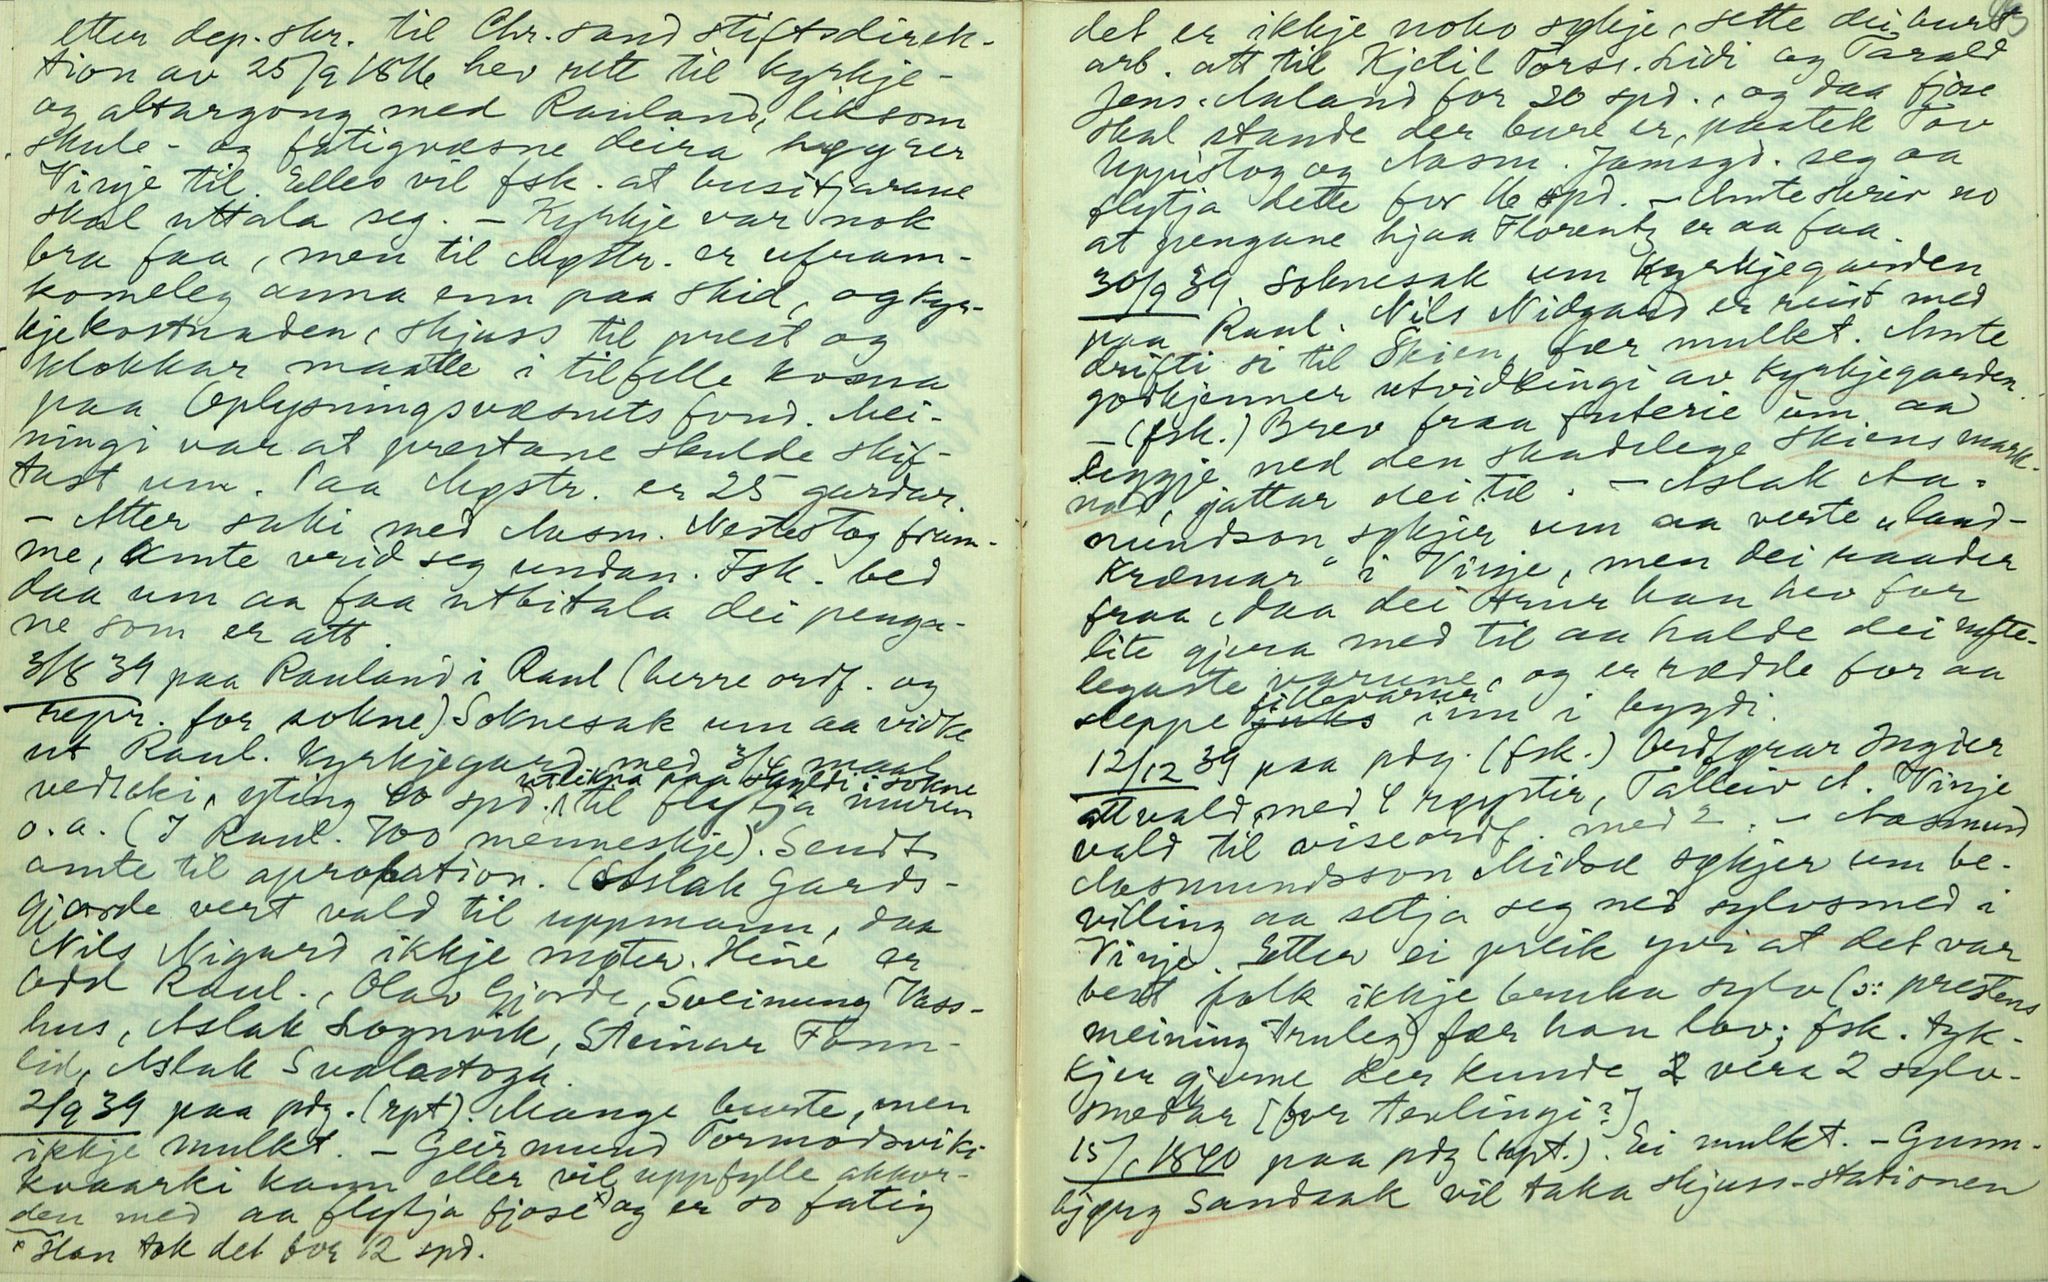 etter dep.skr. til Chr.sand stiftsdirek-
tion av 25/9 1816 hev rett til kyrkje-
og altargong med Rauland, liksom
skule- og fatigvæsne deira høyrer
Vinje til. Elles vil fsk. at busitjarane
skal uttala seg. - Kyrkje var nok
bra faa, men til Møstr. er ufram-
komeleg anna enn paa skid, og kyr-
kjekostnaden, skjuss til prest og
klokkar maatte i tilfelle koma
paa Oplysningsvæsnets fond. Mei-
ningi var at prestane skulde skif-
tast um. Paa Møstr. er 25 gardar.
- Atter saki med Aasm. Nestestog fram-
me, Amte vrid seg undan. Fsk. bed
daa um aa faa utbitala dei penga-
ne som er att.
3/8 39 paa Rauland i Raul (berre ordf. og
repr. for sokne) Soknesak um aa vidke
ut Raul. Kyrkjegard med 3/4 maal
utlikna paa skyldi i sokne
vedteki, yting 20 spd. til flytja muren
o.a. (I Raul. 700 menneskje). Sendt
amte til aprobation. (Aslak Gards-
gjorde vert vald til uppmann, daa
Nils Nigard ikkje møter. Hine er
Odd Raul., Olav Gjorde, Sveinung Vass-
hus, Aslak Lognvik, Steinar Fonn-
lid, Aslak Svalastoga.
2/9 39 paa pdg. (rpt). Mange burte, men
ikkje mulkt. - Geirmund Tormodsviki
kvaarki kann eller vil uppfylle akkor-
den med aa flytja fjose x) og er so fatig
x Han tok det for 12 spd.
det er ikkje noko søkje, sette dei burt
arb. att til Kjetil Torss. Lidi og Tarald
Jens. Aaland for 20 spd., og daa fjose
skal stande der bure er, paatek Tov
Uppistog og Aasm. Jamsgd. seg aa
flytja dette for 16 spd. - Amte skriv no
at pengane hjaa Florentz er aa faa.
30/9 39 Soknesak um Kyrkjegarden
paa Raul. Nils Nidgard er reist med
drifti si til Skien, fær mulkt. Amte
godkjenner utvidkingi av Kyrkjegarden.
- (fsk.) Brev fraa futerie um aa
leggje ned den skadelege Skiensmark-
nad, jattar dei til. - Aslak Aa-
mundson søkjer um aa verte "land-
kræmar" i Vinje, men dei raader
fraa, daa dei trur han hev for
lite gjera med til aa halde dei nytte-
legaste varune, og er rædde for aa
sleppe fillevarur inn i bygdi.
12/12 39 paa pdg. (fsk.) Ordførar Ingier
attvald med 4 røystir, Talleiv A. Vinje
vald til viseordf. med 2. - Aasmund
Aasmundsson Midbø søkjer um be-
villing aa setja seg ned sylvsmed i
Vinje. Etter ei prlik yvi at det var
best folk ikkje bruka sylv (ɔ: prestens
meining truleg) fær han lov; fsk. tyk-
kjer gjerne der kunde vera 2 sylv-
smedar [for tevlingi?]
15/1 1840 paa pdg (rpt.). Ei mulkt. - Gunn-
bjørg Sandaak vil taka skjuss-stationen